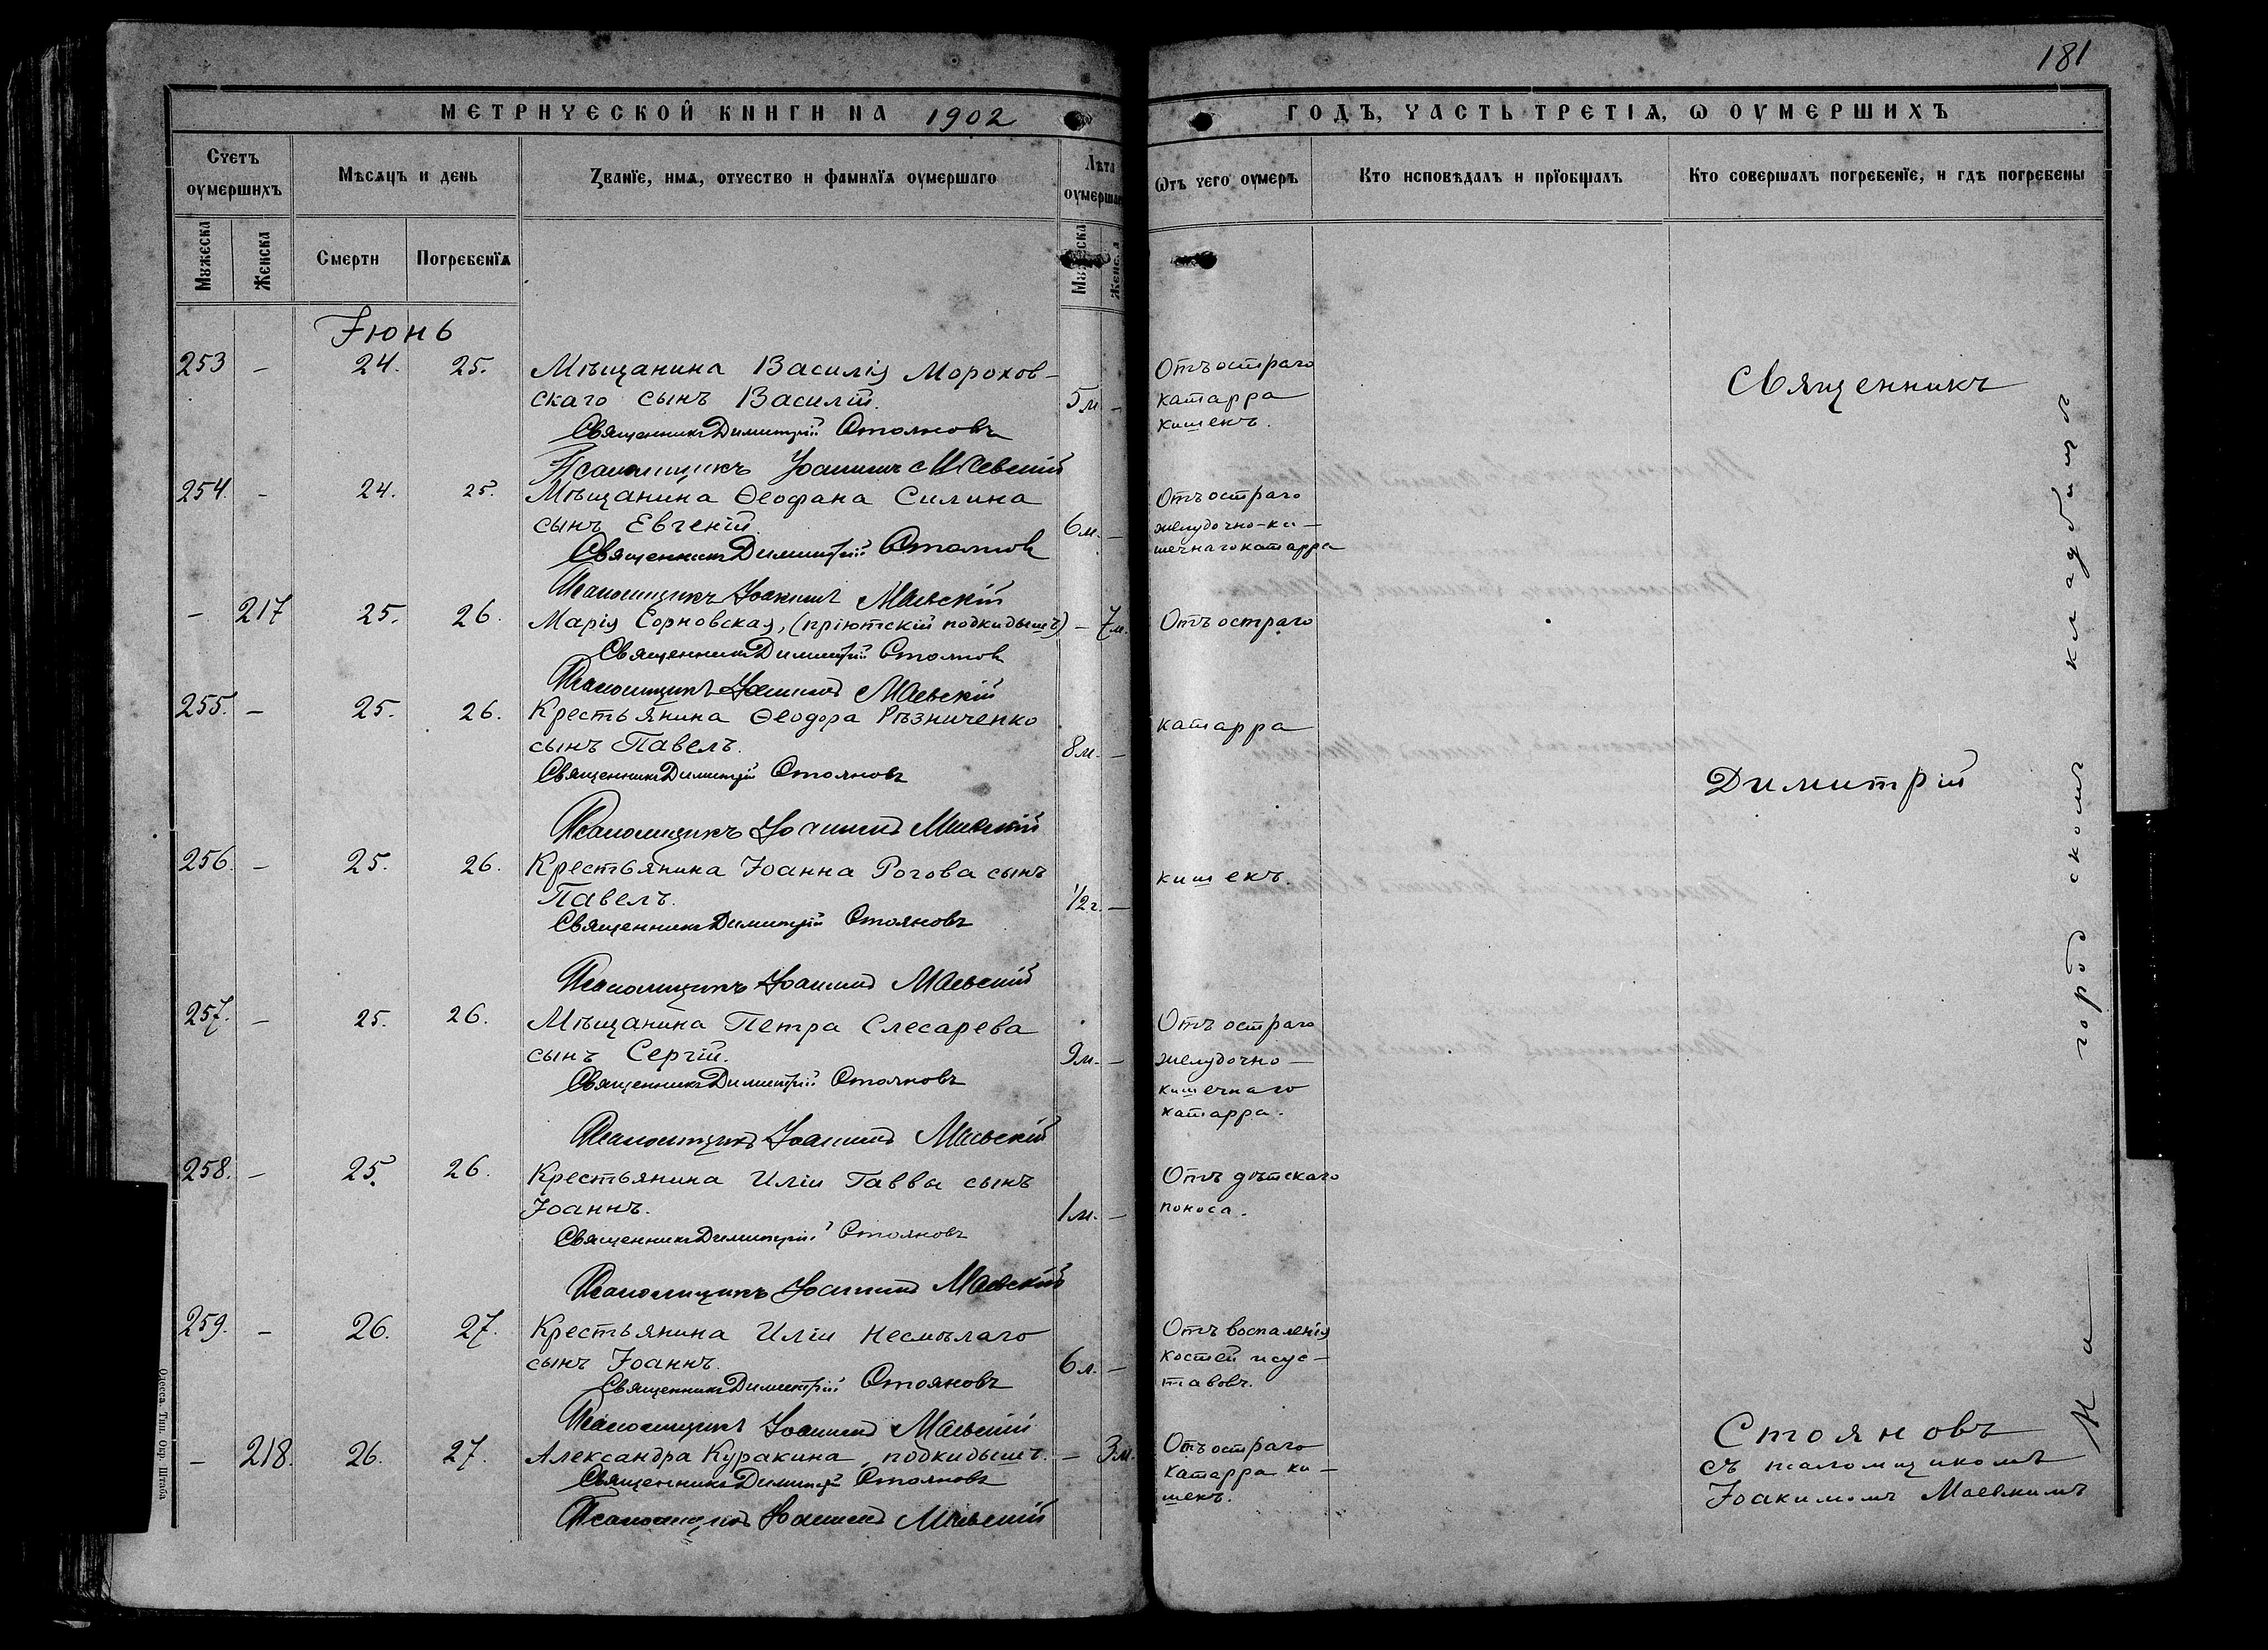 181
МЕТРИЧЕСКОЙ КНИГИ НА 1902
ГОДЪ, ЧАСТЬ ТРЕТІѦ, Ѡ ОУМЕРШИХЪ
Счетъ оумершихъ
Мѣсѧцъ и день
Званїе, имѧ, отчество и фамилїѧ оумершаго
Лѣта оумерша
Ѿтъ чего оумеръ
Кто исповѣдалъ и прїобщалъ
Кто совершалъ погребенїе, и гдѣ погребены
Мужеска
Женска
Смерти
Погребенїѧ
Мужеска
Женска
Іюнь
253 — 24. 25. Мѣщанина Василія Морохов-
скаго сынъ Василій. 5 м. —
Отъ остраго
катарра
кишекъ.
Священникъ Димитрій Стояновъ
Псаломщикъ Іоакимъ Маевскій
254. — 24. 25. Мѣщанина Ѳеофана Силина
сынъ Евгеній. 6 м. —
Отъ остраго
желудочно-ки-
шечнаго катарра
Священникъ Димитрій Стояновъ
Псаломщикъ Іоакимъ Маевскій
— 217 25. 26. Марія Сорновская, (пріютскій подкидышъ) — 7 м.
Отъ остраго
Священникъ Димитрій Стояновъ
Псаломщикъ Іоакимъ Маевскій
255. — 25. 26. Крестьянина Ѳеодора Рѣзниченко
сынъ Павелъ. 8 м. —
катарра
Священникъ Димитрій Стояновъ
Псаломщикъ Іоакимъ Маевскій
256. — 25. 26. Крестьянина Іоанна Рогова сынъ
Павелъ. 1/2 г. —
кишекъ.
Священникъ Димитрій Стояновъ
Псаломщикъ Іоакимъ Маевскій
257. — 25. 26. Мѣщанина Петра Слесарева
сынъ Сергій. 9 м. —
Отъ остраго
желудочно-
кишечнаго
катарра.
Священникъ Димитрій Стояновъ
Псаломщикъ Іоакимъ Маевскій
258. — 25. 26. Крестьянина Иліи Гаввы сынъ
Іоаннъ. 1 м. —
Отъ дѣтскаго
поноса.
Священникъ Димитрій Стояновъ
Псаломщикъ Іоакимъ Маевскій
259. — 26. 27. Крестьянина Иліи Несмѣлаго
сынъ Іоаннъ. 6 л. —
Отъ воспаленія
костей и сус-
тавовъ.
Священникъ Димитрій Стояновъ
Псаломщикъ Іоакимъ Маевскій
— 218. 26. 27. Александра Куракина, подкидышъ. — 3 м.
Отъ остраго
катарра ки-
шекъ.
Священникъ Димитрій Стояновъ
Псаломщикъ Іоакимъ Маевскій
Священникъ
Димитрій
Стояновъ
съ псаломщикомъ
Іоакимомъ Маевскимъ
На городскомъ кладбищѣ
Одесса. Тип. Окр. Штаба